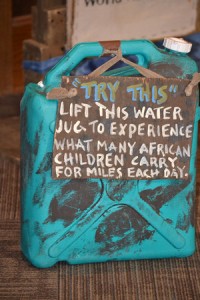 World
"TRY THIS"
LIFT THIS WATER
JUG TO EXPERIENCE
WHAT MANY AFRICAN
CHILDREN CARRY
FOR MILES EACH DAY.